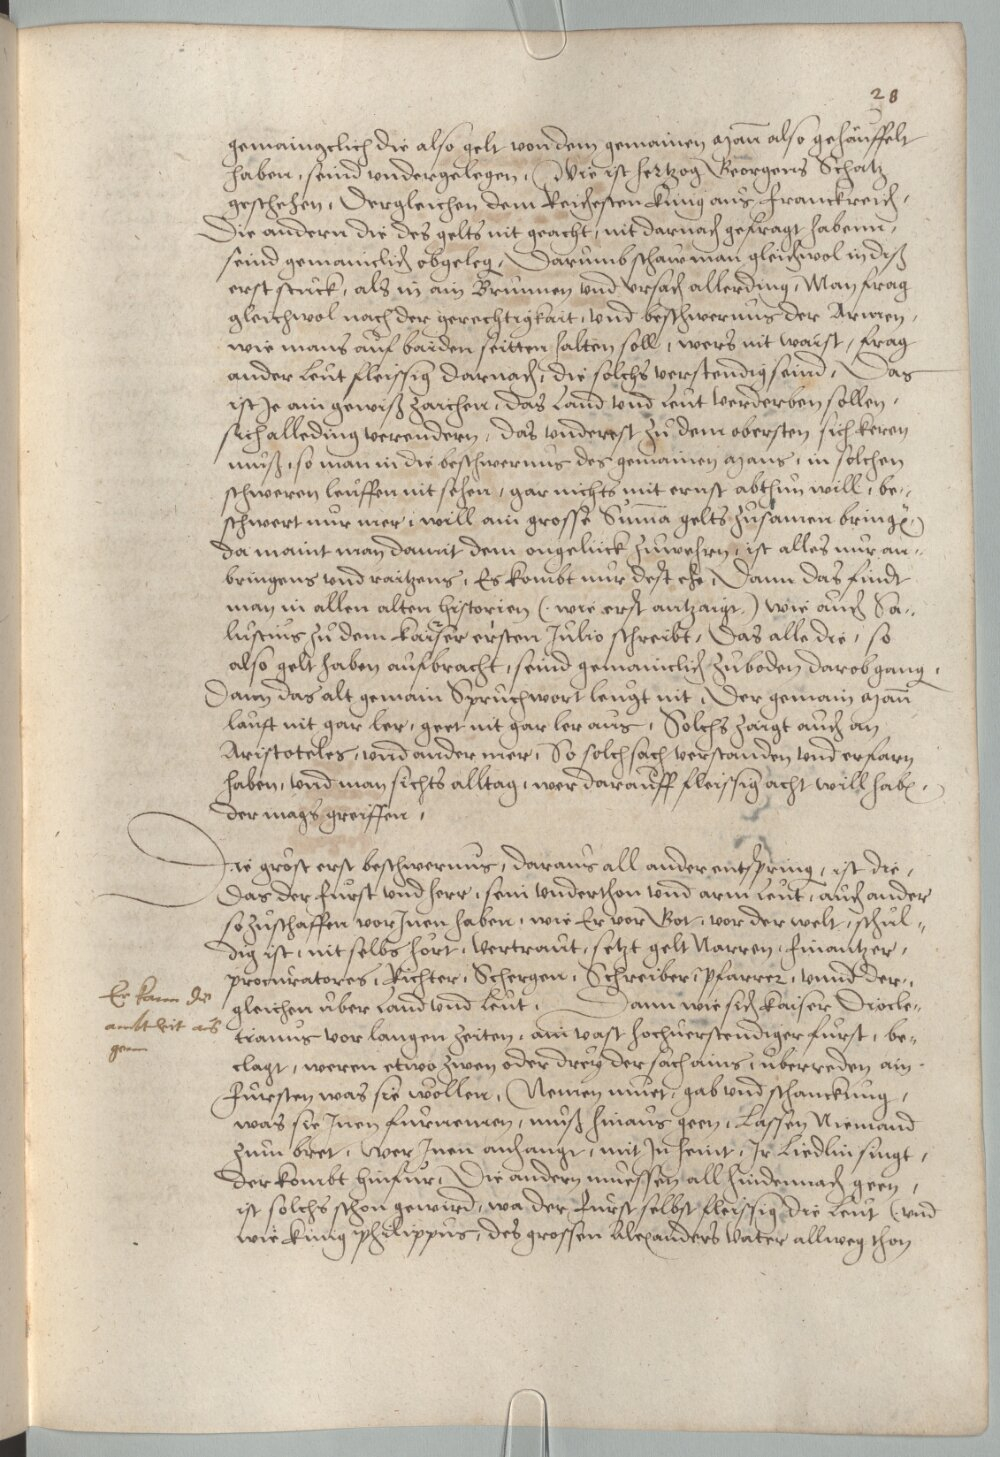 28
gemaingclich die also gelt von dem gemainen man also gehäuffelt
haben, seind undergelegen, Wie ist hertzog Georgens Schatz
geschehen, Dergleichen dem Reichesten Kung aus Franckreich,
Die andern die des gelts nit geacht, nit darnach gefragt habenn,
seind gemainclich obgeleg, Darumb schaw man gleichwol in diß
erst stuck, als in ain Brunnen vnd vrsach allerding, Man frag
gleichwol nach der gerechtigkait, vnd beschwernus der Armen,
wie mans auf baiden seitten halten soll, wers nit waist, frag
ander leut fleissig darnach, die solchs verstendig seind, Das
ist Je ain gewiß zaichen, das Land vnd leut verderben sollen,
sich alleding verendern, das vnderest zu dem obersten sich keren
muß, so man in die beschwernus des gemainen mans, in solchen
schweren leuffen nit sehen, gar nichts mit ernst abthun will, be-
schwert nur mer, will ain grosse Suma gelts zusamen bringen
da maint man damit dem ongelück zuwehrn, ist alles nur an-
bringens vnd raitzens, Es kombt nur dest ehe, Dann das findt
man in allen alten historien (wie erst antzaigt) wie auch Sa-
lustius zu dem kaiser ersten Julio schreibt, Das alle die, so
also gelt haben aufbracht, seind gemainclich zuboden darob gang,
Dann das alt gemain Spruchwort leugt nit, Der gemain man
lauft nit gar ler, geet nit gar ler aus, Solchs zaigt auch an
Aristoteles, vnd ander mer, So solch sach verstanden vnd erfarn
haben, vnd man sichts alltag, wer darauff fleissig acht will hab,
der mags greiffen,
Die gröst erst beschwernus, daraus all ander entspring, ist die,
Das der Furst vnd herr, sein vnderthon vnd arm leut, auch ander
so zuschaffen vor Inen haben, wie Er vor Got, vor der welt, schul-
dig ist, nit selbs hört, vertraut, setzt gelt Narren, finantzer,
procuratores, Richter, Schergen, Schreiber, Pfarrer, vnnd der-
gleichen uber Land vnd Leut, Dann wie sich kaiser Diocle-
tianus vor langen zeiten, ain vast hochuerstendiger furst, be-
clagt, weren etwo zwen oder drey der sach ains, uberreden ain
Fursten was sie wöllen, Nemen muet, gab vnd schanckung,
was sie Inen furnemen, muß hinaus geen, Lassen Niemand
zum bret, Wer Inen anhangt, mit In heint, Ir Liedlin singt,
der kombt hinfur, Die andern muessen all hindennach geen,
ist solchs schon gewird, wa der Furst selbst fleissig die Leut (vnd
wie kunig Philippus, des grossen Alexanders Vater allweg thon
Er kann die
gern